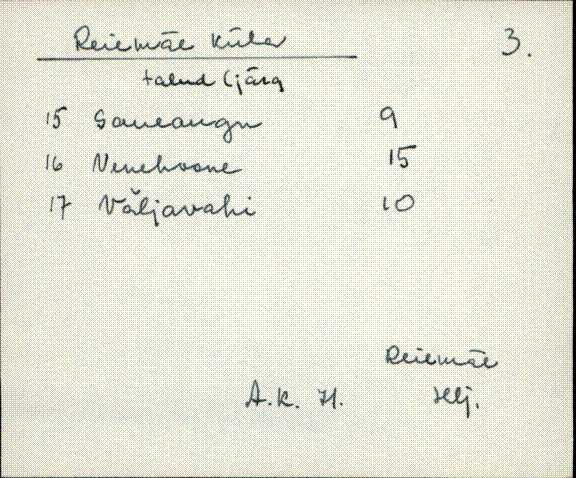 Reiemäe küla
3.
talud (järg
15 Saueaugu 9
16 Venehoone 15
17 Väljavahi 10
Reiemäe
A.K. H. Hlj.